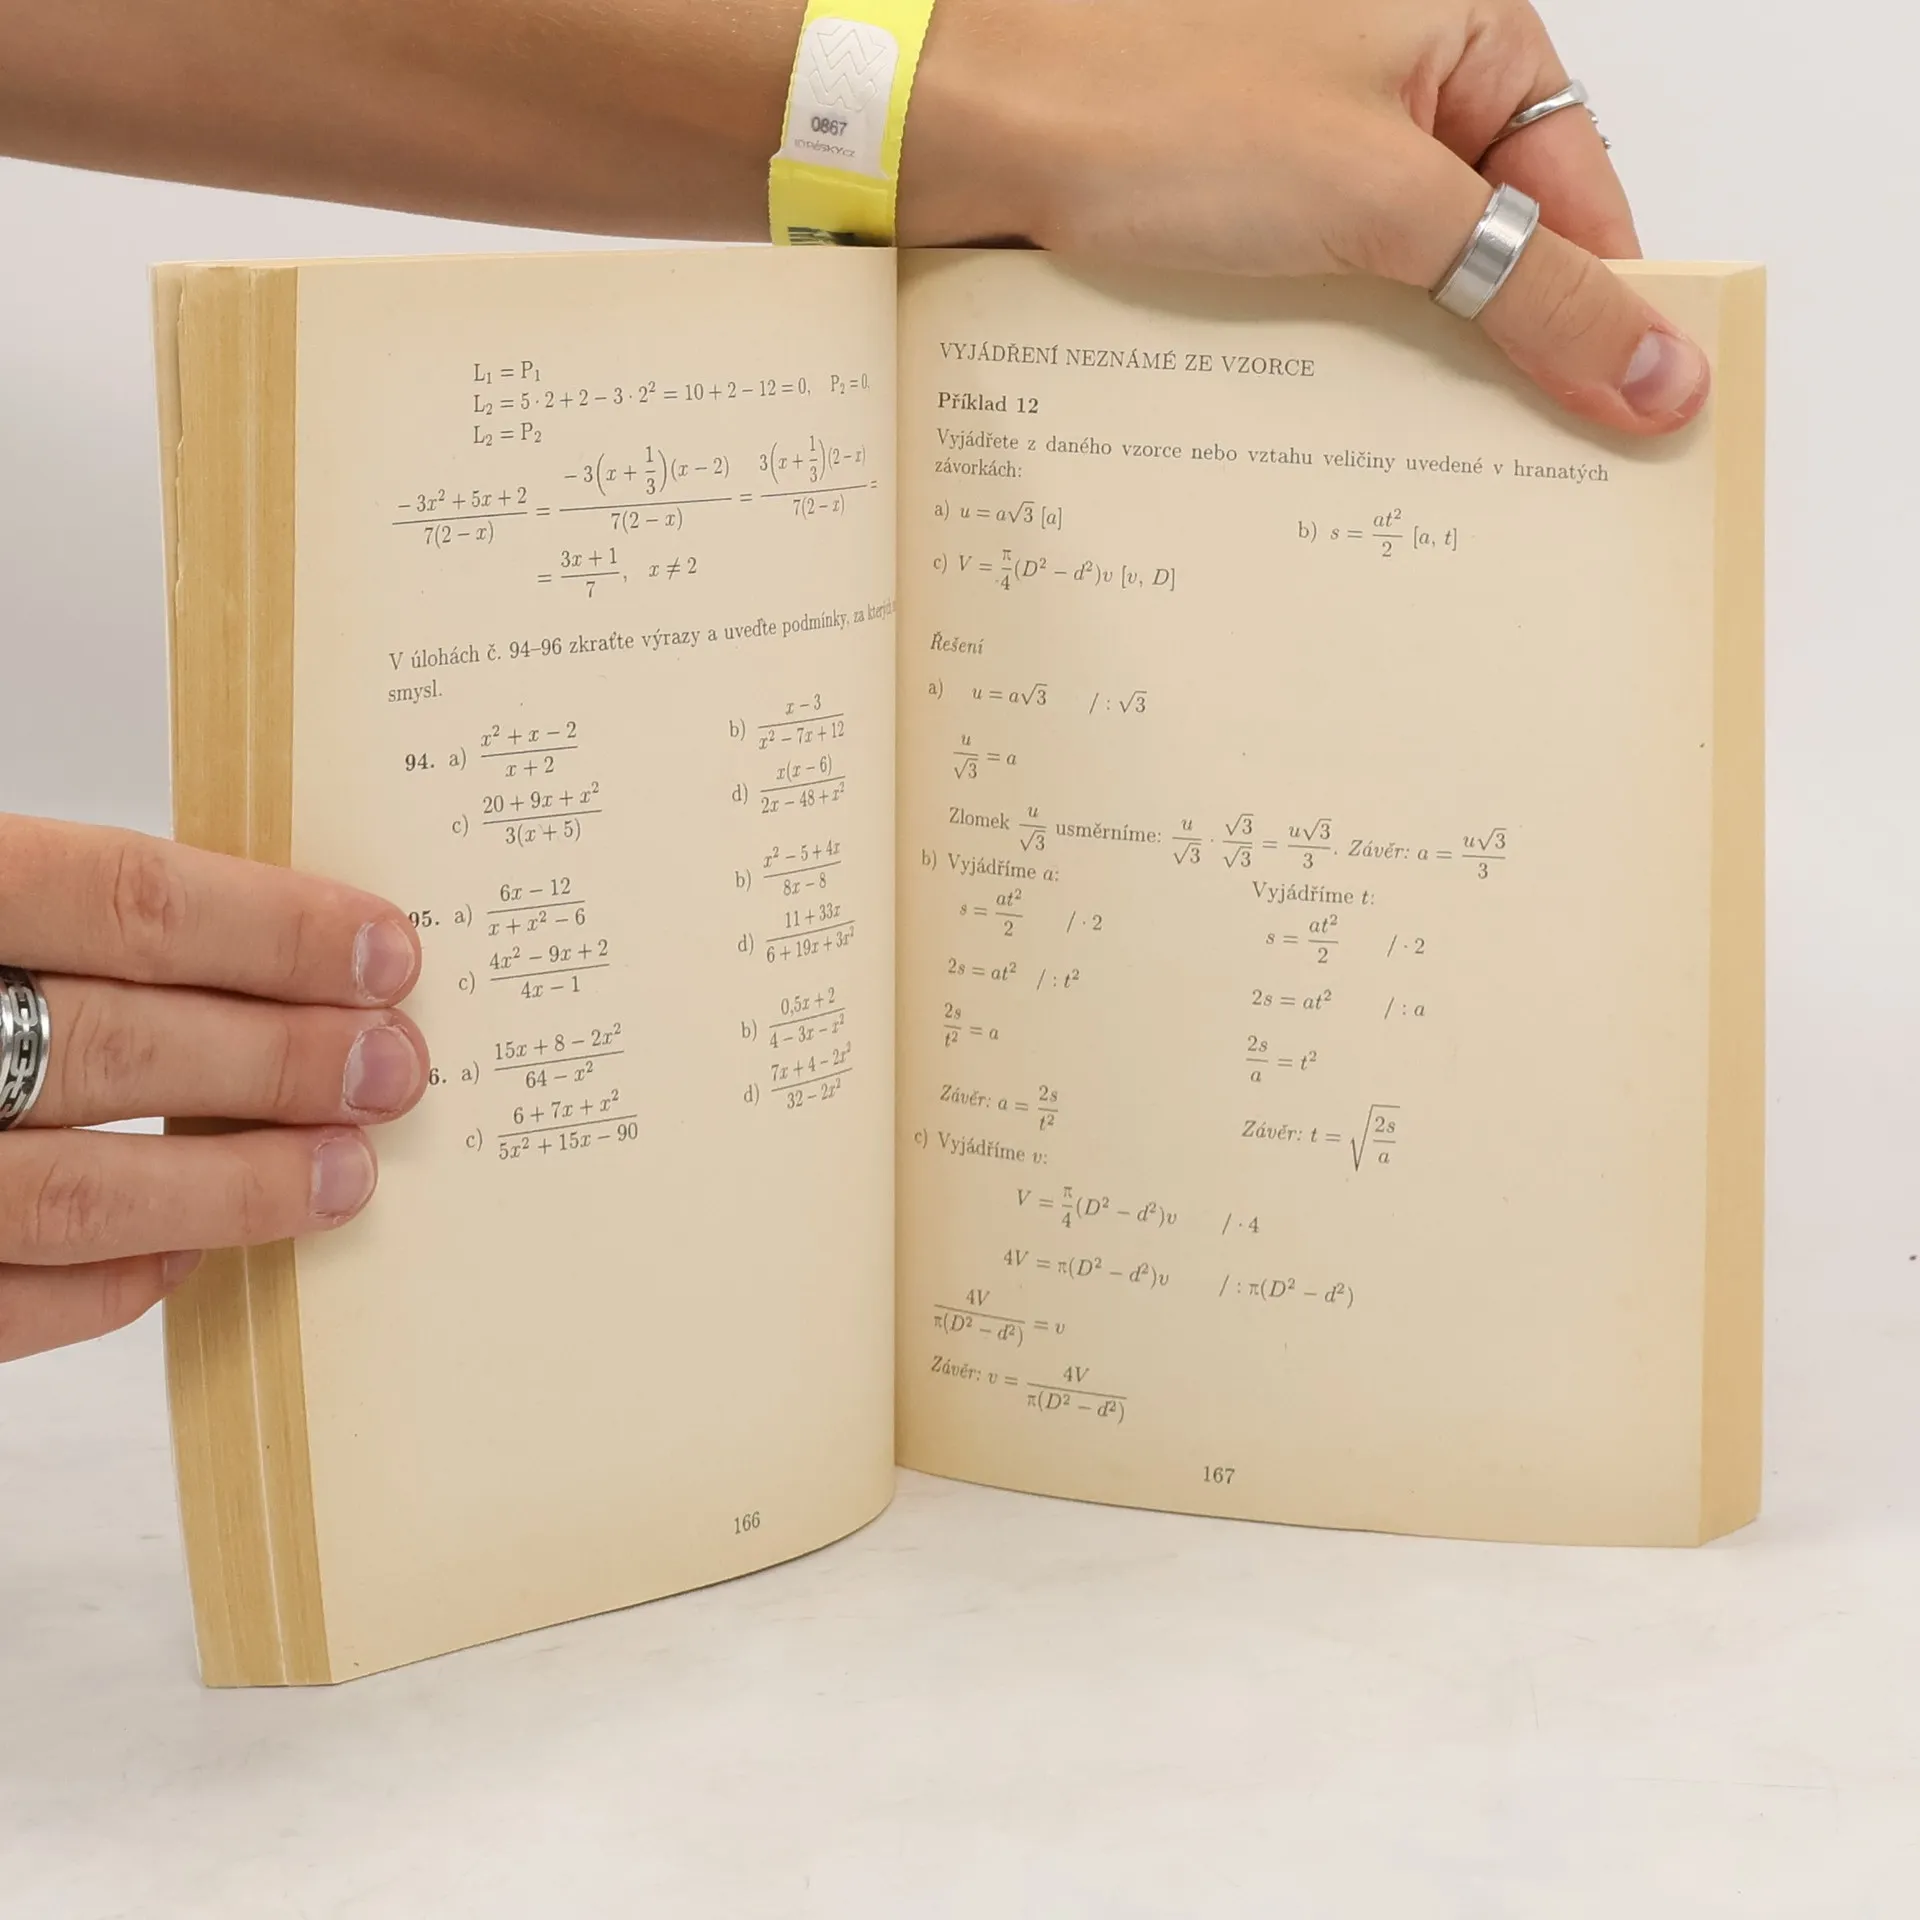 0867
L₁ = P₁
L₂ = 5 · 2 + 2 − 3 · 2² = 10 + 2 − 12 = 0, P₂ = 0,
L₂ = P₂
\frac{−3x² + 5x + 2}{7(2 − x)} = \frac{−3(x + \frac{1}{3})(x − 2)}{7(2 − x)} = \frac{3(x + \frac{1}{3})(2 − x)}{7(2 − x)} =
= \frac{3x + 1}{7}, x ≠ 2
V úlohách č. 94–96 zkraťte výrazy a uveďte podmínky, za
smysl.
94. a) \frac{x² + x − 2}{x + 2} b) \frac{x − 3}{x² − 7x + 12}
c) \frac{20 + 9x + x²}{3(x + 5)} d) \frac{x(x − 6)}{2x − 48 + x²}
95. a) \frac{6x − 12}{x + x² − 6} b) \frac{x² − 5 + 4x}{8x − 8}
c) \frac{4x² − 9x + 2}{4x − 1} d) \frac{11 + 33x}{6 + 19x + 3x²}
6. a) \frac{15x + 8 − 2x²}{64 − x²} b) \frac{0,5x + 2}{4 − 3x − x²}
c) \frac{6 + 7x + x²}{5x² + 15x − 90} d) \frac{7x + 4 − 2x²}{32 − 2x²}
166
VYJÁDŘENÍ NEZNÁMÉ ZE VZORCE
Příklad 12
Vyjádřete z daného vzorce nebo vztahu veličiny uvedené v hranatých
závorkách:
a) u = a√3 [a] b) s = \frac{at²}{2} [a, t]
c) V = \frac{π}{4}(D² − d²)v [v, D]
Řešení
a) u = a√3 / : √3
\frac{u}{√3} = a
Zlomek \frac{u}{√3} usměrníme: \frac{u}{√3} · \frac{√3}{√3} = \frac{u√3}{3}. Závěr: a = \frac{u√3}{3}
b) Vyjádříme a: Vyjádříme t:
s = \frac{at²}{2} / · 2 s = \frac{at²}{2} / · 2
2s = at² / : t² 2s = at² / : a
\frac{2s}{t²} = a \frac{2s}{a} = t²
Závěr: a = \frac{2s}{t²} Závěr: t = \sqrt{\frac{2s}{a}}
c) Vyjádříme v:
V = \frac{π}{4}(D² − d²)v / · 4
4V = π(D² − d²)v / : π(D² − d²)
\frac{4V}{π(D² − d²)} = v
Závěr: v = \frac{4V}{π(D² − d²)}
167